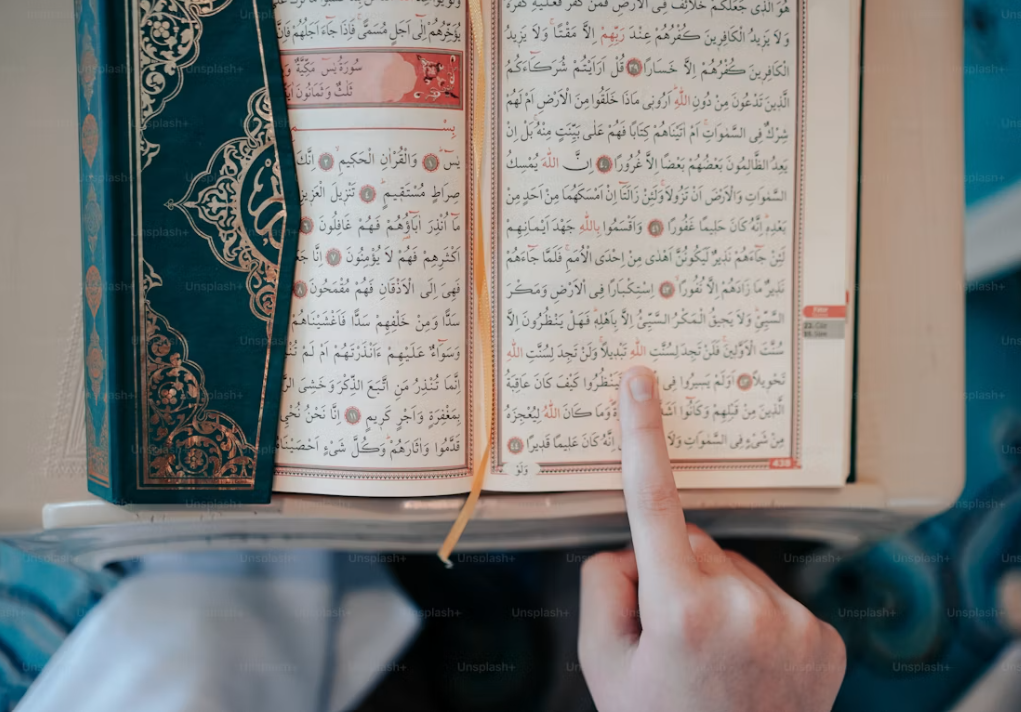 هُوَ الَّذِى جَعَلَكُمْ خَلَائِفَ فِى الْاَرْضِ فَمَنْ كَفَرَ فَعَلَيْهِ كُفْرُهُ
وَلَا يَزِيدُ الْكَافِرِينَ كُفْرُهُمْ عِنْدَ رَبِّهِمْ اِلَّا مَقْتًا وَلَا يَزِيدُ
الْكَافِرِينَ كُفْرُهُمْ اِلَّا خَسَارًا ٣٩ قُلْ اَرَاَيْتُمْ شُرَكَٓاءَكُمُ
الَّذِينَ تَدْعُونَ مِنْ دُونِ اللّٰهِ اَرُونِى مَاذَا خَلَقُوا مِنَ الْاَرْضِ اَمْ لَهُمْ
شِرْكٌ فِى السَّمٰوَاتِ اَمْ اٰتَيْنَاهُمْ كِتَابًا فَهُمْ عَلٰى بَيِّنَتٍ مِنْهُ بَلْ اِنْ
يَعِدُ الظَّالِمُونَ بَعْضُهُمْ بَعْضًا اِلَّا غُرُورًا ٤٠ اِنَّ اللّٰهَ يُمْسِكُ
السَّمٰوَاتِ وَالْاَرْضَ اَنْ تَزُولَا وَلَئِنْ زَالَتَٓا اِنْ اَمْسَكَهُمَا مِنْ اَحَدٍ مِنْ
بَعْدِهِ اِنَّهُ كَانَ حَلِيمًا غَفُورًا ٤١ وَاَقْسَمُوا بِاللّٰهِ جَهْدَ اَيْمَانِهِمْ
لَئِنْ جَٓاءَهُمْ نَذِيرٌ لَيَكُونُنَّ اَهْدٰى مِنْ اِحْدَى الْاُمَمِ فَلَمَّا جَٓاءَهُمْ
نَذِيرٌ مَا زَادَهُمْ اِلَّا نُفُورًا ٤٢ اِسْتِكْبَارًا فِى الْاَرْضِ وَمَكْرَ
السَّيِّئِ وَلَا يَحِيقُ الْمَكْرُ السَّيِّئُ اِلَّا بِاَهْلِهِ فَهَلْ يَنْظُرُونَ اِلَّا
سُنَّتَ الْاَوَّلِينَ فَلَنْ تَجِدَ لِسُنَّتِ اللّٰهِ تَبْدِيلًا وَلَنْ تَجِدَ لِسُنَّتِ اللّٰهِ
تَحْوِيلًا ٤٣ اَوَلَمْ يَسِيرُوا فِى فَيَنْظُرُوا كَيْفَ كَانَ عَاقِبَةُ
الَّذِينَ مِنْ قَبْلِهِمْ وَكَانُٓوا اَشَدَّ وَمَا كَانَ اللّٰهُ لِيُعْجِزَهُ
مِنْ شَىْءٍ فِى السَّمٰوَاتِ وَلَا اِنَّهُ كَانَ عَلِيمًا قَدِيرًا ٤٤
وَلَوْ
438
Fatır
22. Cüz
35. Sure
يُؤَخِّرُهُمْ اِلٰٓى اَجَلٍ مُسَمًّى فَاِذَا جَٓاءَ اَجَلُهُمْ فَاِنَّ
سُورَةُ يٰسٓ مَكِّيَّةٌ وَ
ثَلَثٌ وَثَمَانُونَ
بِسْـــ
يٰسٓ ١ وَالْقُرْاٰنِ الْحَكِيمِ ٢ اِنَّكَ
صِرَاطٍ مُسْتَقِيمٍ ٤ تَنْزِيلَ الْعَزِيزِ
مَٓا اُنْذِرَ اٰبَٓاؤُهُمْ فَهُمْ غَافِلُونَ ٦
اَكْثَرِهِمْ فَهُمْ لَا يُؤْمِنُونَ ٧ اِنَّا
فَهِىَ اِلَى الْاَذْقَانِ فَهُمْ مُقْمَحُونَ ٨
سَدًّا وَمِنْ خَلْفِهِمْ سَدًّا فَاَغْشَيْنَاهُمْ
وَسَوَٓاءٌ عَلَيْهِمْ ءَاَنْذَرْتَهُمْ اَمْ لَمْ
اِنَّمَا تُنْذِرُ مَنِ اتَّبَعَ الذِّكْرَ وَخَشِىَ
بِمَغْفِرَةٍ وَاَجْرٍ كَرِيمٍ ١١ اِنَّا نَحْنُ نُحْيِ
قَدَّمُوا وَاٰثَارَهُمْ وَكُلَّ شَىْءٍ اَحْصَيْنَاهُ
Unsplash+